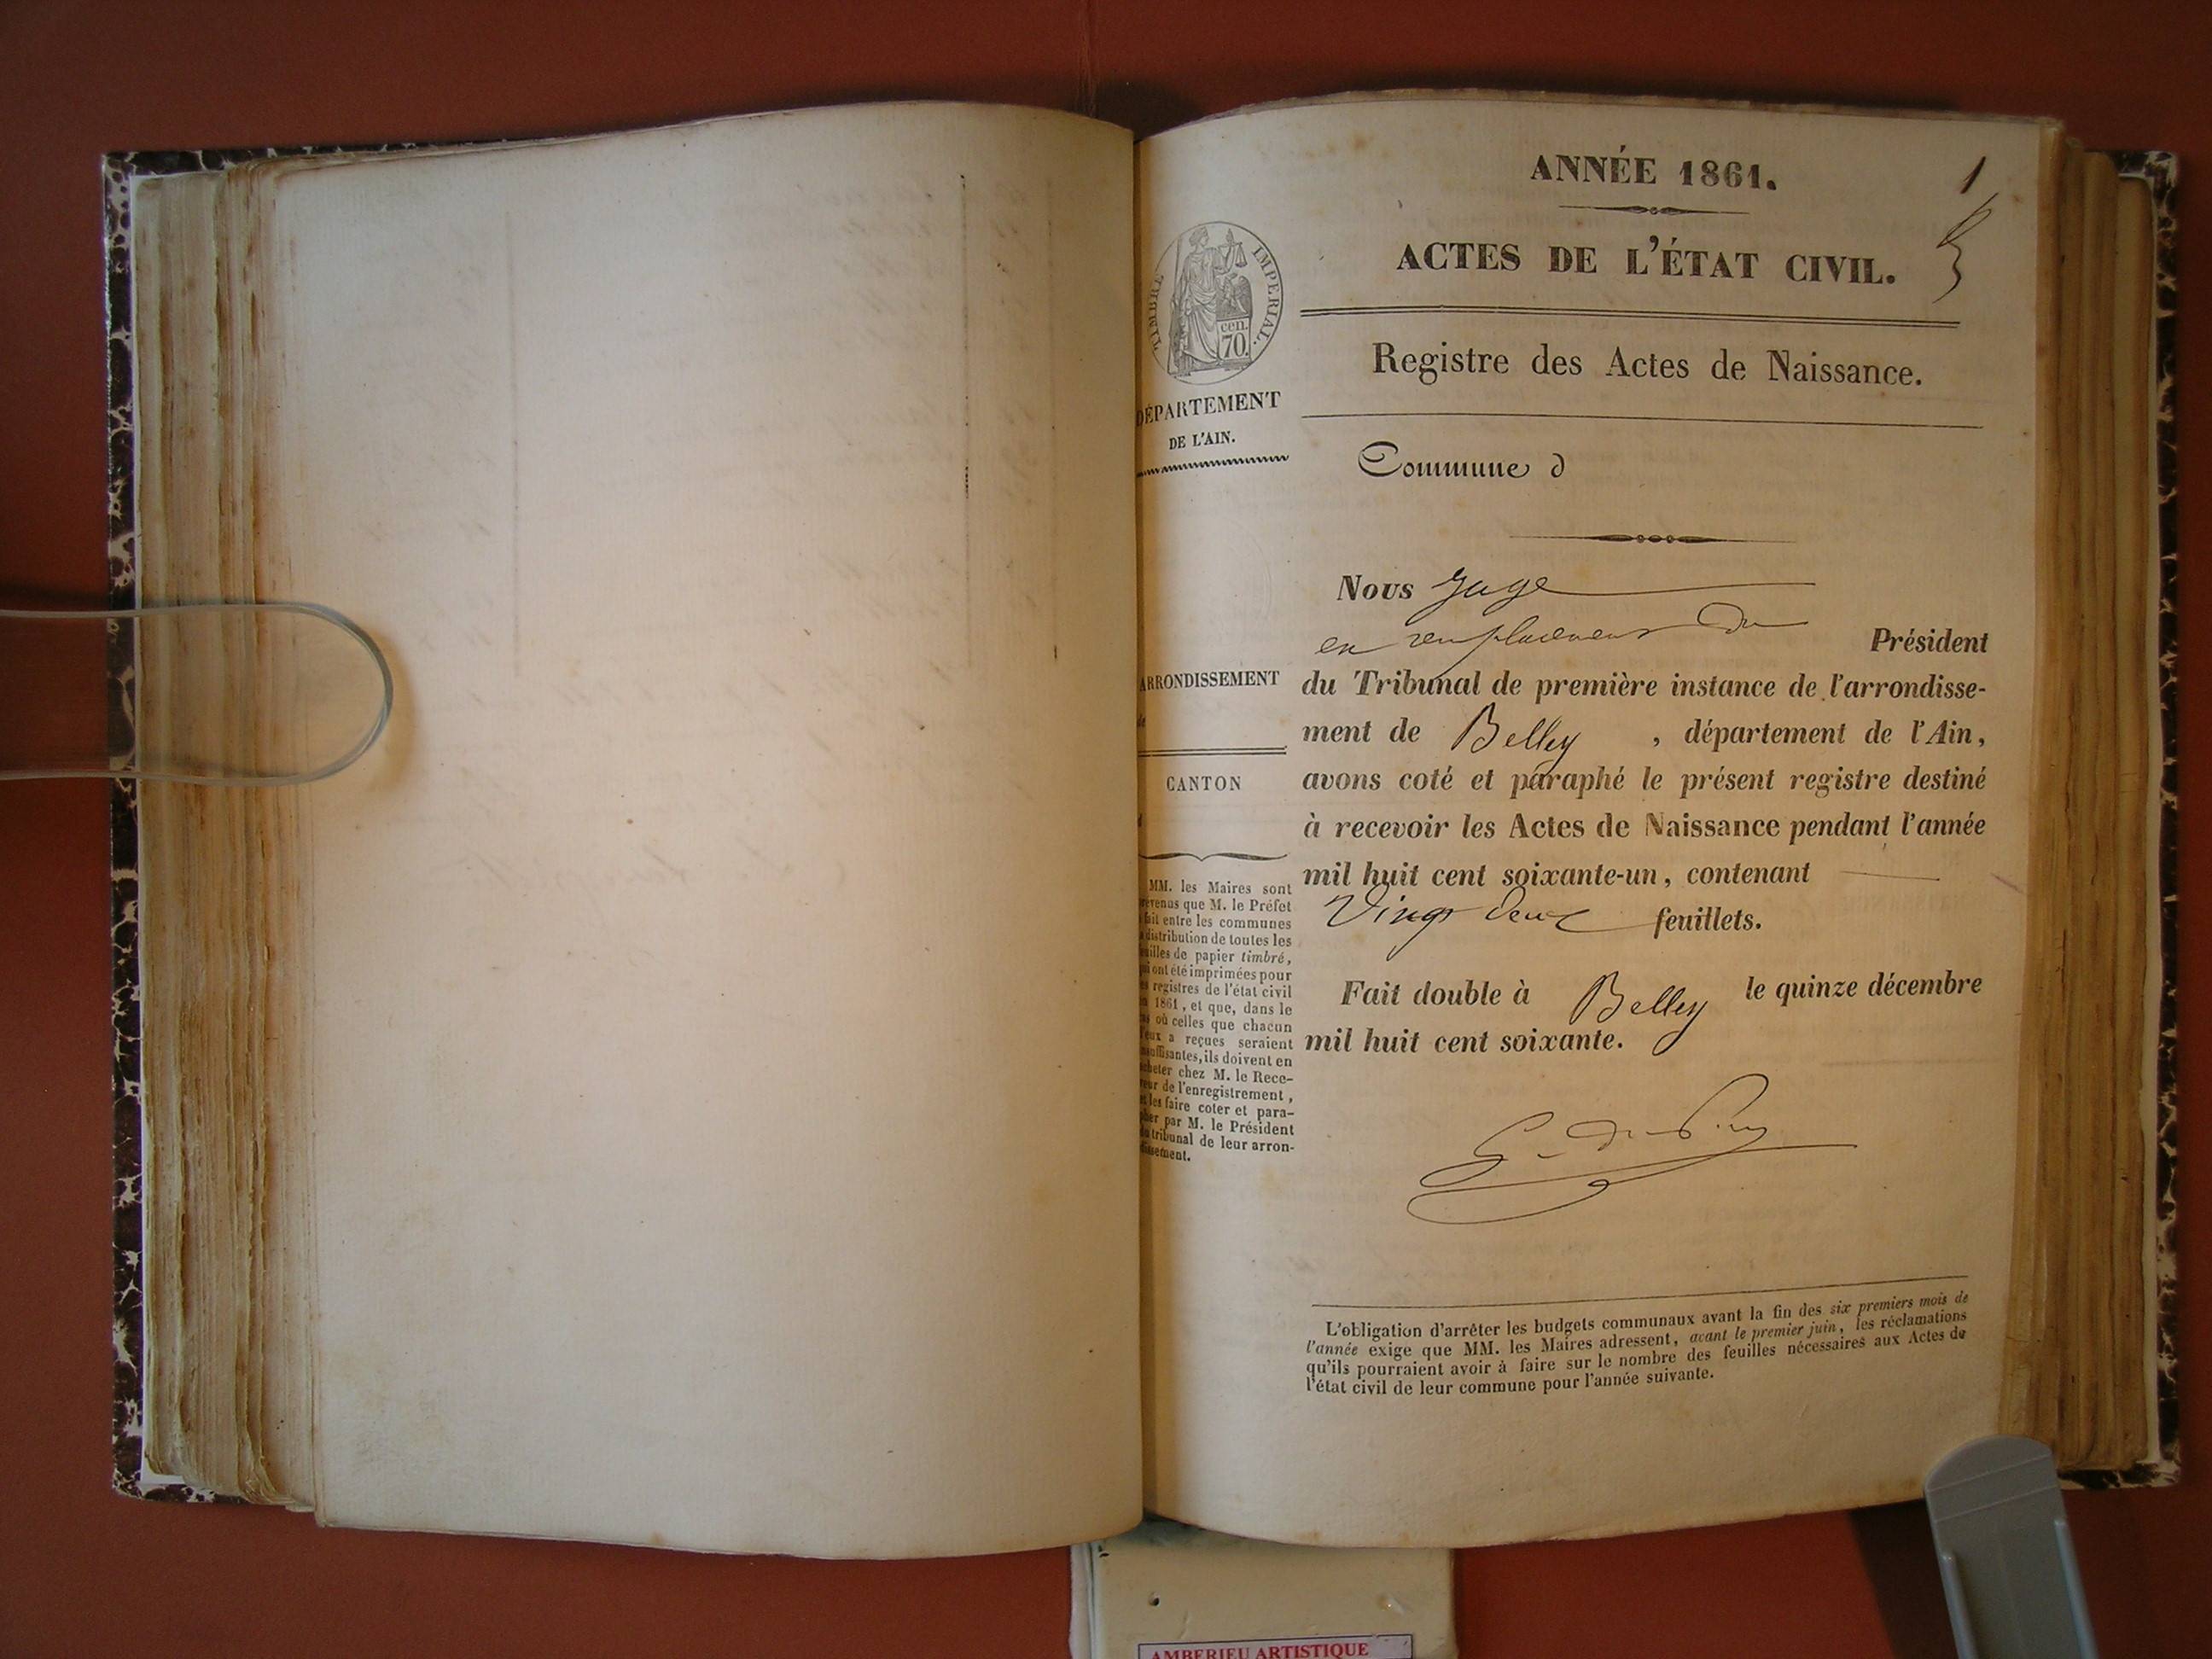 ANNÉE 1861.
1
ACTES DE L'ÉTAT CIVIL.
Registre des Actes de Naissance.
TIMBRE IMPERIAL.
cen.
70.
DÉPARTEMENT
DE L'AIN.
Commune d
Nous Juge
en remplacement du Président
du Tribunal de première instance de l'arrondisse-
ment de Belley, département de l'Ain,
avons coté et paraphé le présent registre destiné
à recevoir les Actes de Naissance pendant l'année
mil huit cent soixante-un, contenant
Vingt deux feuillets.
Fait double à Belley le quinze décembre
mil huit cent soixante.
ARRONDISSEMENT
de
CANTON
d
MM. les Maires sont
prévenus que M. le Préfet
a fait entre les communes
la distribution de toutes les
feuilles de papier timbré,
qui ont été imprimées pour
les registres de l'état civil
en 1861, et que, dans le
cas où celles que chacun
d'eux a reçues seraient
insuffisantes, ils doivent en
acheter chez M. le Rece-
veur de l'enregistrement,
et les faire coter et para-
pher par M. le Président
du tribunal de leur arron-
dissement.
L'obligation d'arrêter les budgets communaux avant la fin des six premiers mois de
l'année exige que MM. les Maires adressent, avant le premier juin, les réclamations
qu'ils pourraient avoir à faire sur le nombre des feuilles nécessaires aux Actes de
l'état civil de leur commune pour l'année suivante.
AMBERIEU ARTISTIQUE